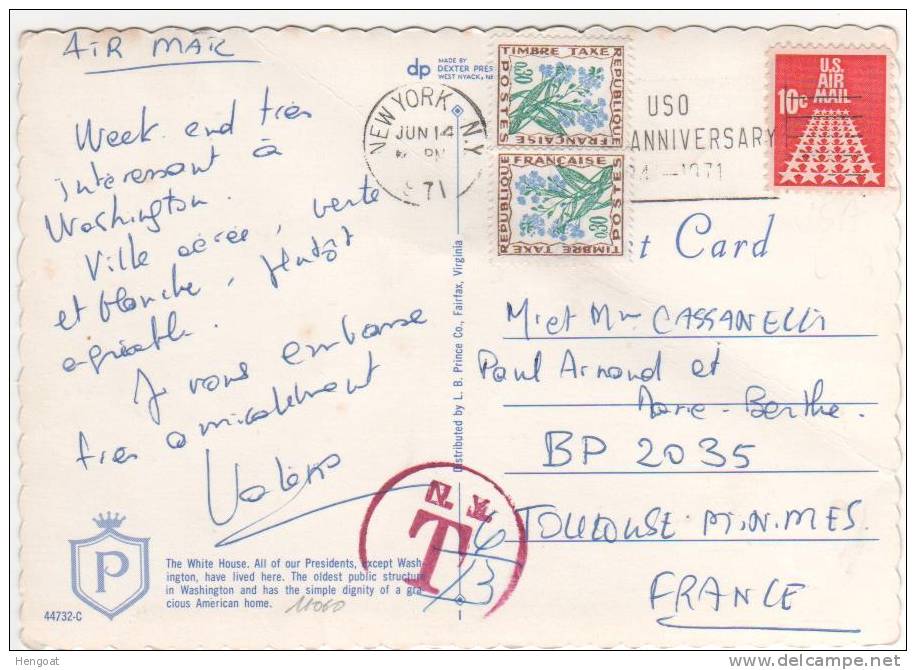 AIR MAIL
dp MADE BY
DEXTER PRES
WEST NYACK, NE
Week end très
intéressant à
Washington.
Ville aérée, verte
et blanche, plutôt
agréable.
Je vous embrasse
très amicalement
NEW YORK N.Y
JUN 14
PM
71
TIMBRE TAXE
REPUBLIQUE
FRANÇAISE
POSTES
0,30
REPUBLIQUE
FRANÇAISE
POSTES
TIMBRE TAXE
0,30
USO
ANNIVERSARY
1971
U.S.
AIR
MAIL
10c
t Card
M. et Mme CASSANELLI
Paul Arnaud et
Marie-Berthe.
BP 2035
TOULOUSE MINIMES.
FRANCE
Distributed by L. B. Prince Co., Fairfax, Virginia
N.Y.
T
6/13
P
The White House. All of our Presidents, except Wash-
ington, have lived here. The oldest public structure
in Washington and has the simple dignity of a gra-
cious American home.
44732-C
Hengoat
www.delcampe.net